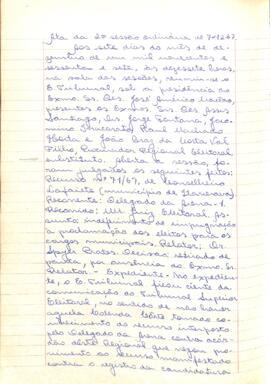 Ata da 2ª sessão ordinária de 7-12-67.
Aos sete dias do mês de de-
zembro de um mil novecentos e
sessenta e sete, às dezessete horas,
na sala das sessões, reuniu-se o
E. Tribunal, sob a presidência do
Exmo. Sr. Des. José Américo
presentes os Exmos. Srs. Des.
Santiago, Drs. Jorge Fontana,
Raul Machado
Horta e João Braz da Costa Val
Filho, Procurador Regional Eleitoral,
substituto. Aberta a sessão, fo-
ram julgados os seguintes feitos:
Recurso nº 71/67, de Conselheiro
Lafaiete (município de
Recorrente: Delegado da Arena-1.
Recorrido: MM. Juiz Eleitoral. As-
sunto: indeferimento de impugnação
à proclamação dos eleitos para os
cargos municipais. Relator: Dr.
Decisão: retirado de
pauta, por ausência do Exmo. Sr.
Relator. - Expediente - No expedien-
te, o E. Tribunal ficou ciente da
comunicação do Tribunal Superior
Eleitoral, no sentido de não haver
aquela tomado co-
nhecimento do recurso interposto
pelo Delegado da Arena contra acór-
dão deste Regional que negou pro-
vimento ao recurso manifestado
contra o registro da candidatura